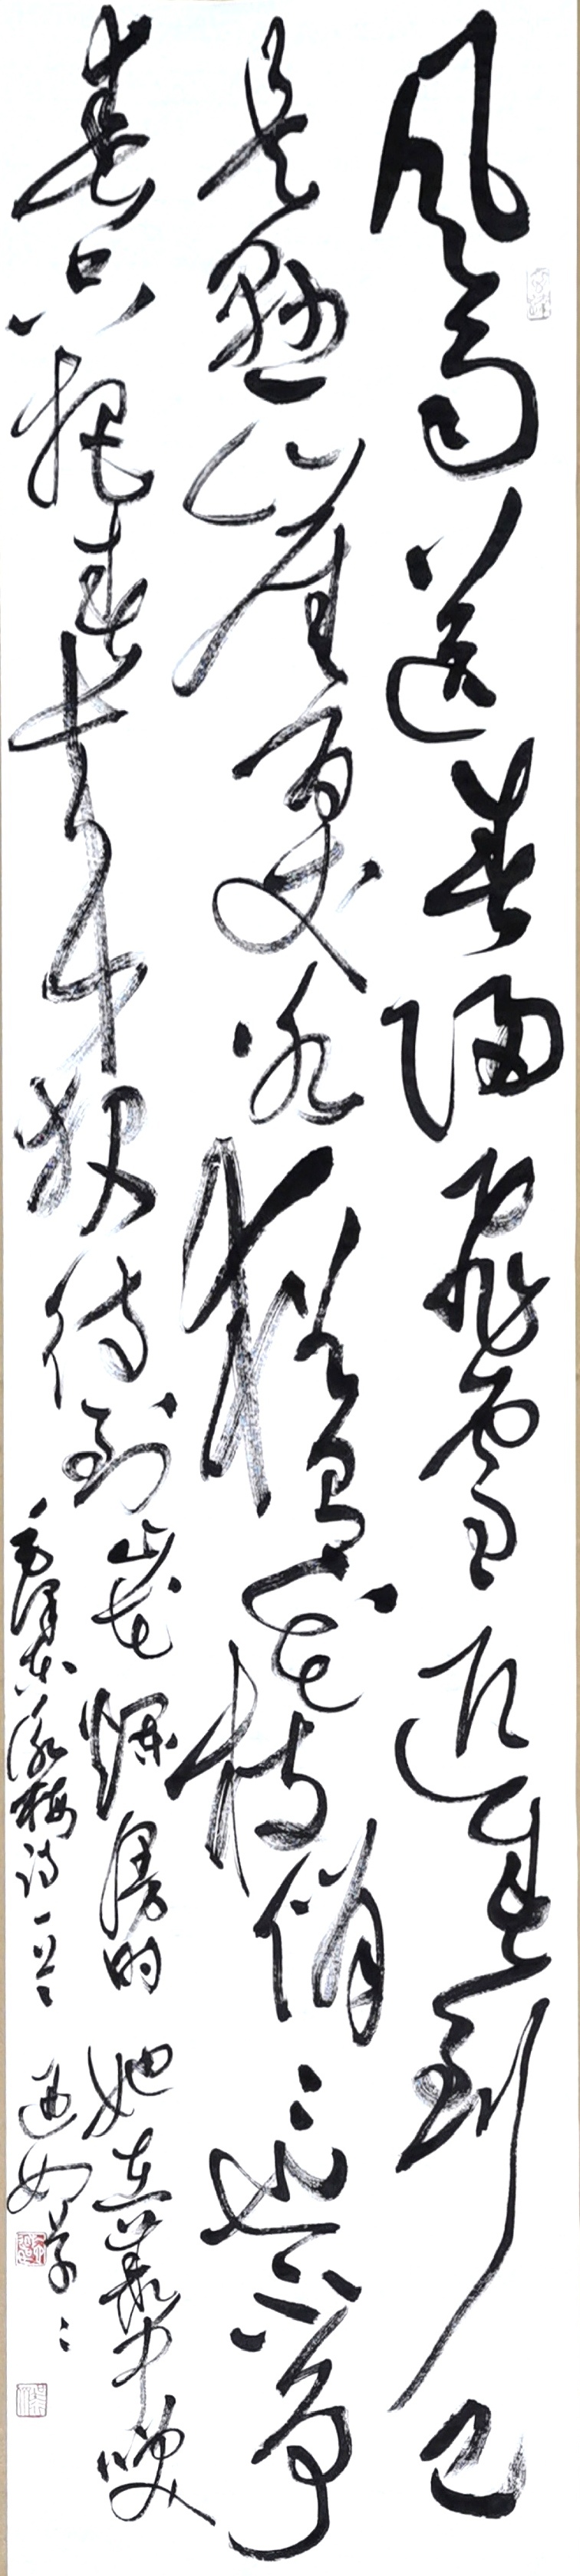 风雨送春归飞雪迎春到已
是悬崖百丈冰猶有花枝俏〻也不争
春只把春来报待到山花烂漫时她在丛中笑
毛泽东咏梅诗一首